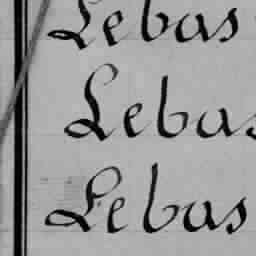 Lebas
Lebas
Lebas